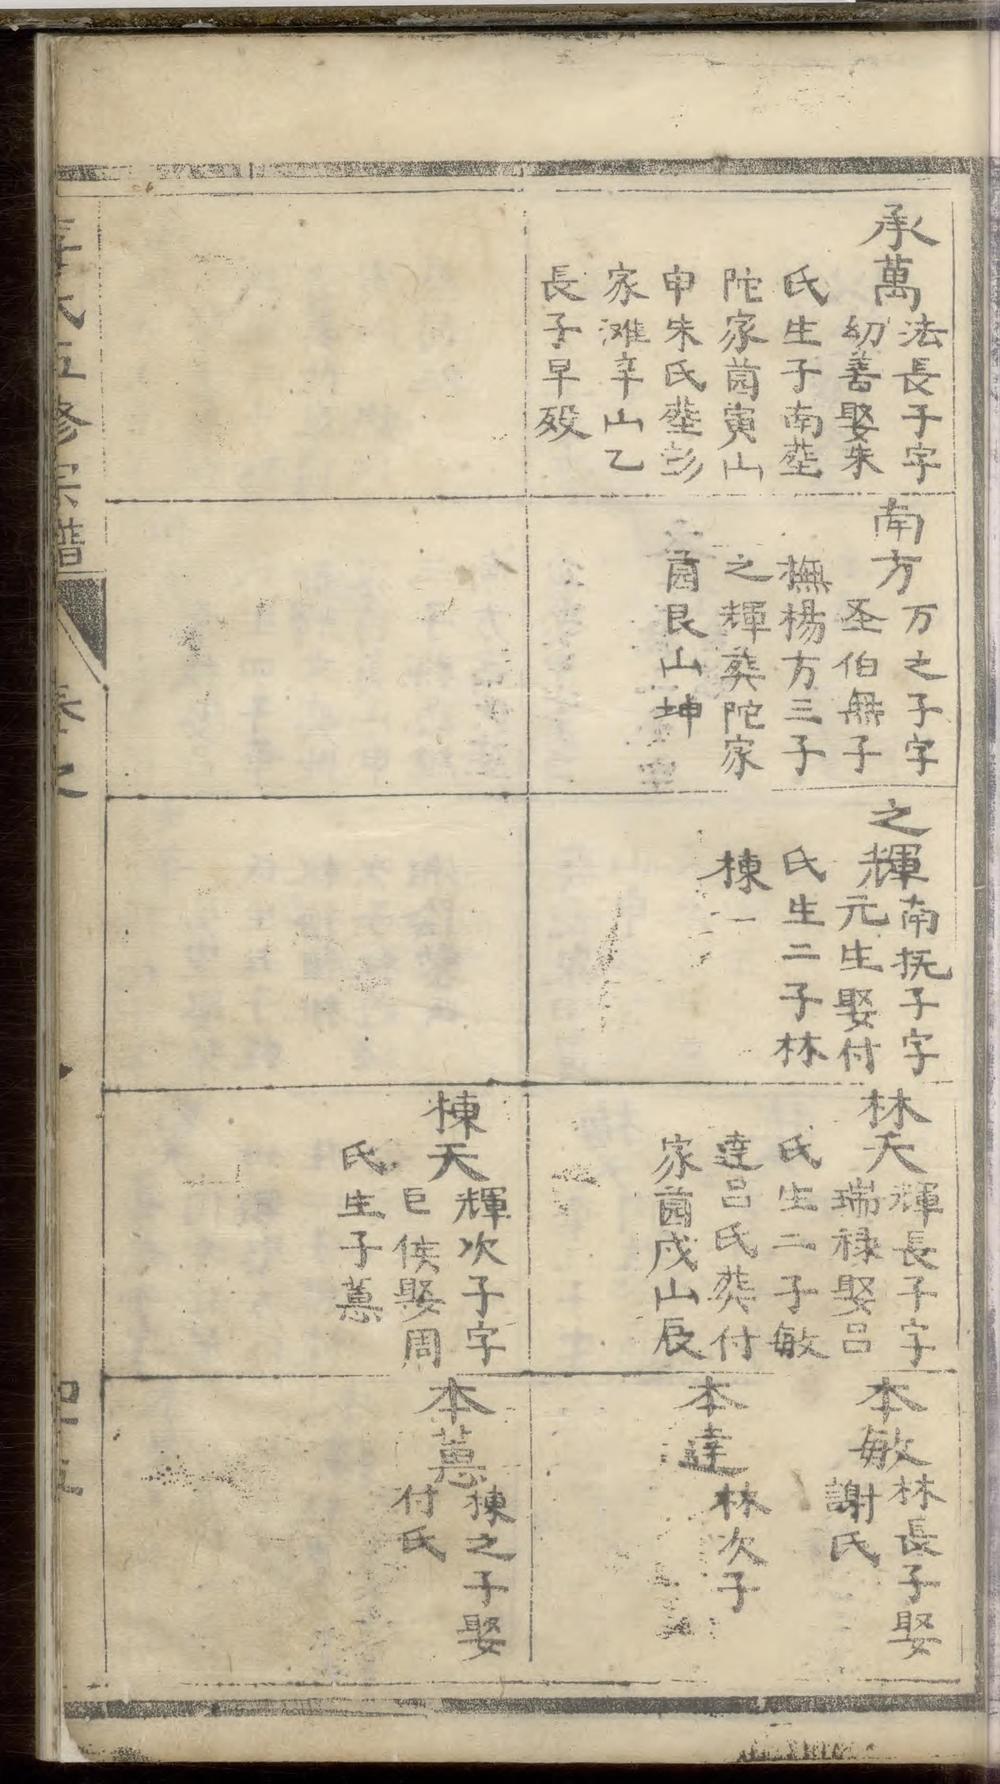 承萬
法長子字
幼善娶朱
氏生子南塟
陀家茵寅山
申朱氏塟彭
家滩辛山乙
長子早殁
南方
万之子字
圣伯無子
撫楊方三子
之輝葬陀家
茵艮山坤
之輝
南抚子字
元生娶付
氏生二子林
棟一
林天
輝長子字
瑞禄娶吕
氏生二子敏
達吕氏葬付
家茵戍山辰
棟天
輝次子字
巨侯娶周
氏生子蒠
本敏
林長子娶
謝氏
本達
林次子
本蒠
棟之子娶
付氏
氏五修宗譜